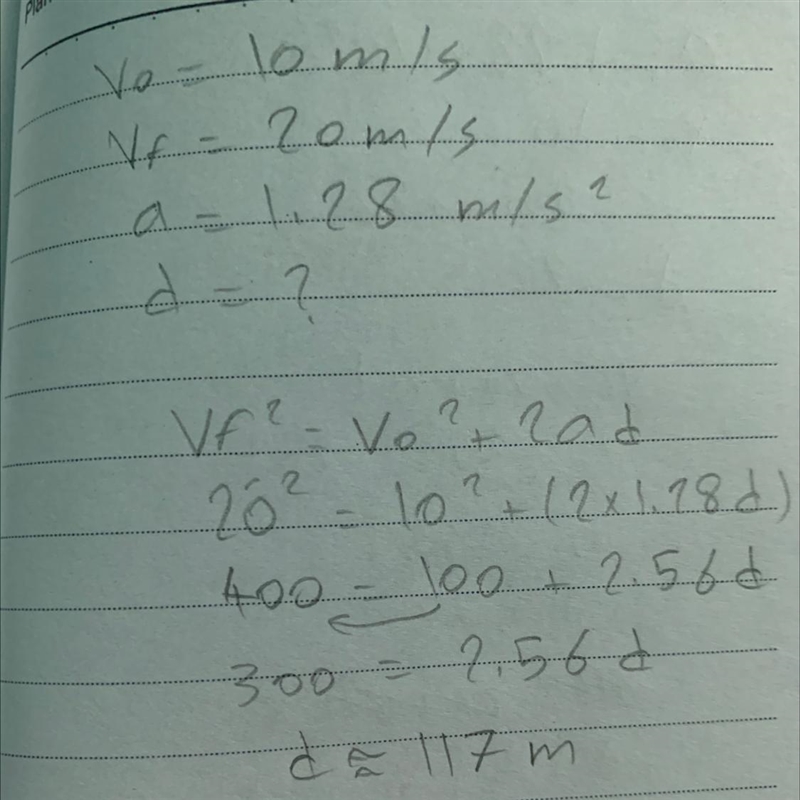 Vo = 10 m/s
Vf = 20 m/s
a = 1.28 m/s²
d = ?
Vf² = Vo² + 2ad
20² = 10² + (2×1.28d)
400 = 100 + 2.56d
300 = 2.56d
d ≈ 117 m